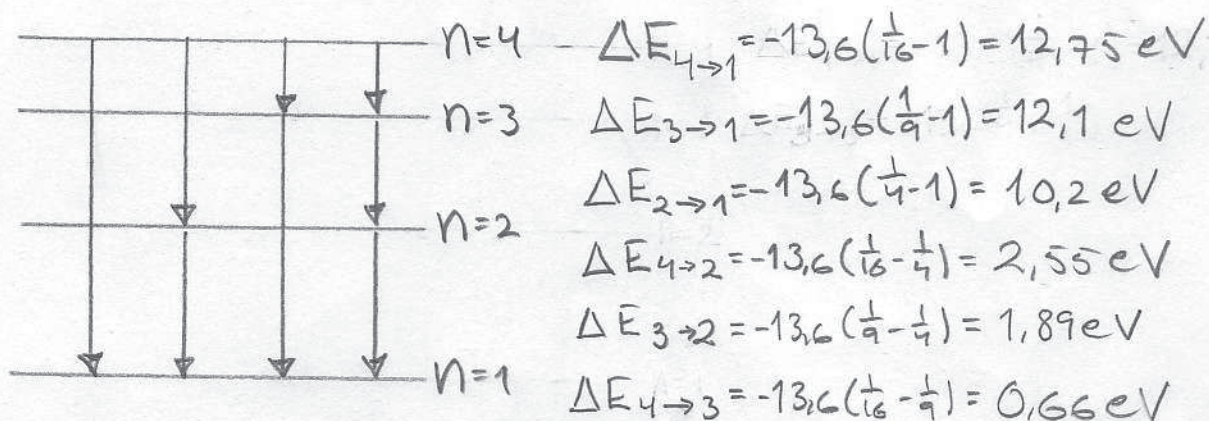 n=4 - ΔE₄→₁=-13,6(1/16-1)=12,75 eV
n=3 ΔE₃→₁=-13,6(1/9-1)=12,1 eV
ΔE₂→₁=-13,6(1/4-1)=10,2 eV
n=2
ΔE₄→₂=-13,6(1/16-1/4)=2,55 eV
ΔE₃→₂=-13,6(1/9-1/4)=1,89 eV
n=1
ΔE₄→₃=-13,6(1/16-1/9)=0,66 eV